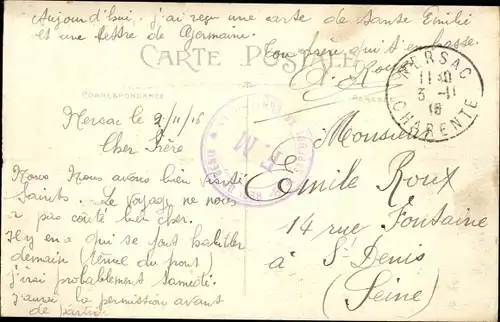 Aujourd'hui, j'ai reçu une carte de Tante Emilie
et une lettre de Germaine.
Ton frère qui t'embrasse.
CARTE POSTALE
A. Roux
CORRESPONDANCE
ADRESSE
NERSAC
3 -11
CHARENTE
Nersac le 2/11/16
Cher Frère
Nous avons bien visité
Saintes. Le voyage ne nous
a pas coûté bien cher.
Il y en a qui se font habiller
demain (tenue du front)
j'irai probablement samedi.
J'aurai la permission avant
de partir.
Monsieur
Emile Roux
14 rue Fontaine
à St Denis
(Seine)